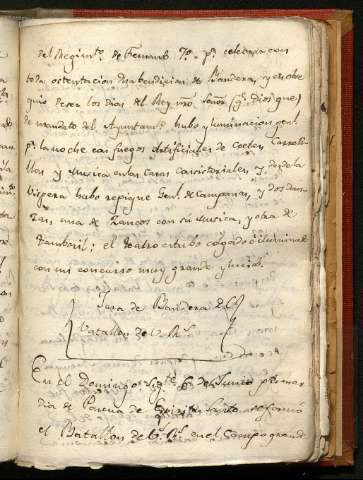 del Regimto. de Fernando 7º. pª. celebrar con
toda ostentacion una bendicion de Bandera, y en obse
quio de ser los dias del Rey nro. Señor (q. Dios gue)
de mandato del Ayuntamto. hubo yluminacion genl.
pª. la noche con fuegos artificiales de Coetes, Carreti
llas y musica en las casas consistoriales, y desde la
vispera hubo repique Genl. de campanas, y dos dan
zas, una de zancos con su musica, y otra de
tamboril; el teatro estubo colgado è iluminado
con un concurso muy grande y lucido.
Jura de Bandera del
Batallon de V. Rs.
En el Domingo sigte. 6 de Junio primer
dia de Pascua de Espiritu Santo se formó
el Batallon de V. Rs. en el Campo grande